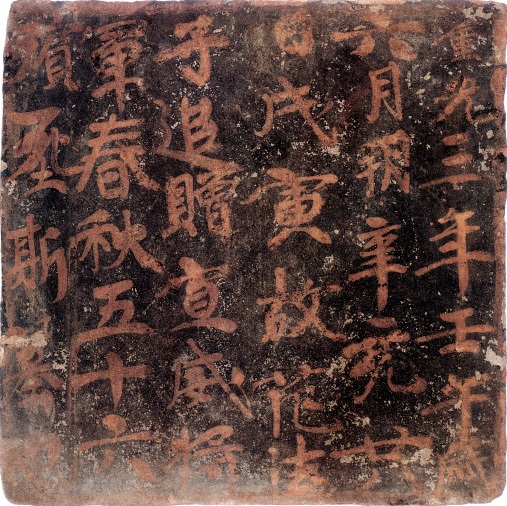 重光三年壬午歲
六月朔辛亥廿八
日戊寅故范法
子追贈宣威將
軍春秋五十六
殯塟斯